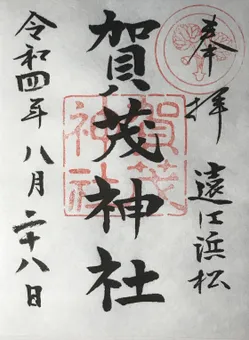 奉拝
遠江浜松
賀茂神社
賀茂
神社
令和四年八月二十八日